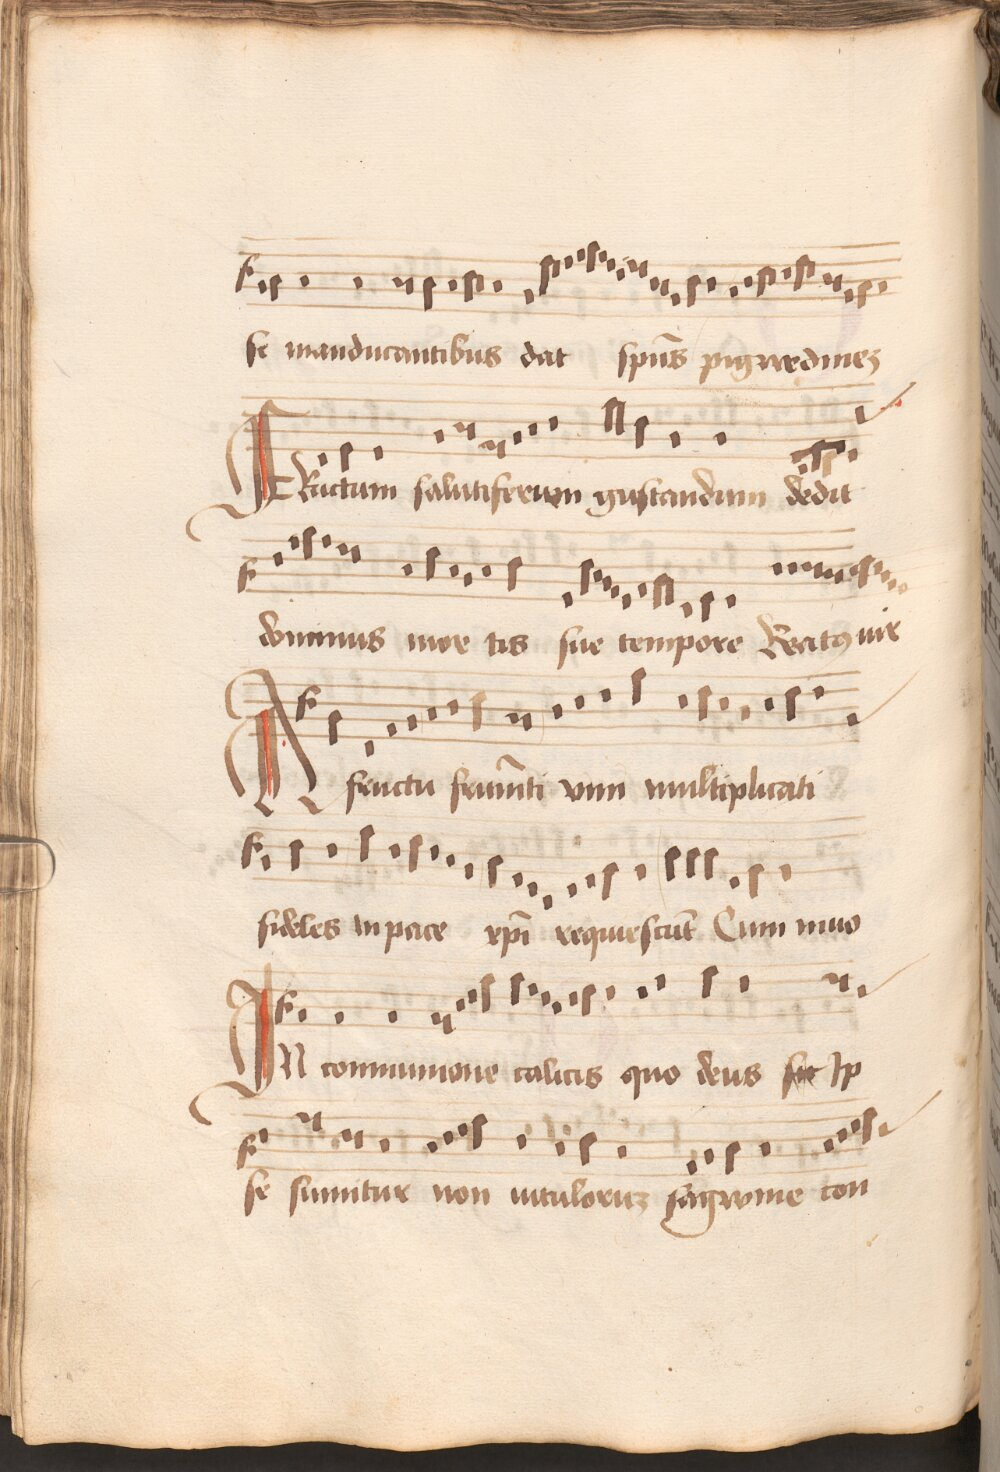 se manducantibus dat spūs pigwedinez
FRuctum salutiferum gustandum dedit
dominus mor tis sue tempore Beatꝯ vir
A fructu frumēti vini multiplicati
fideles in pace xpī requiescūt Cum inuo
IN communione calicis quo deus Ip
se sumitur non vituloruz sangwine con